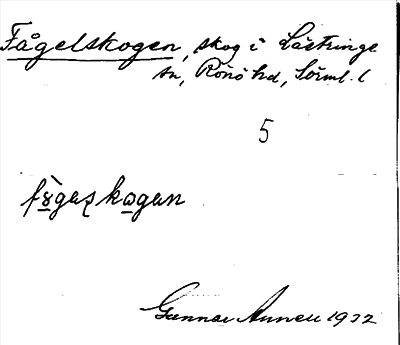 Fågelskogen, skog i Lästringe
sn, Rönö hd, Sörml. l
5
Gunnar 1932